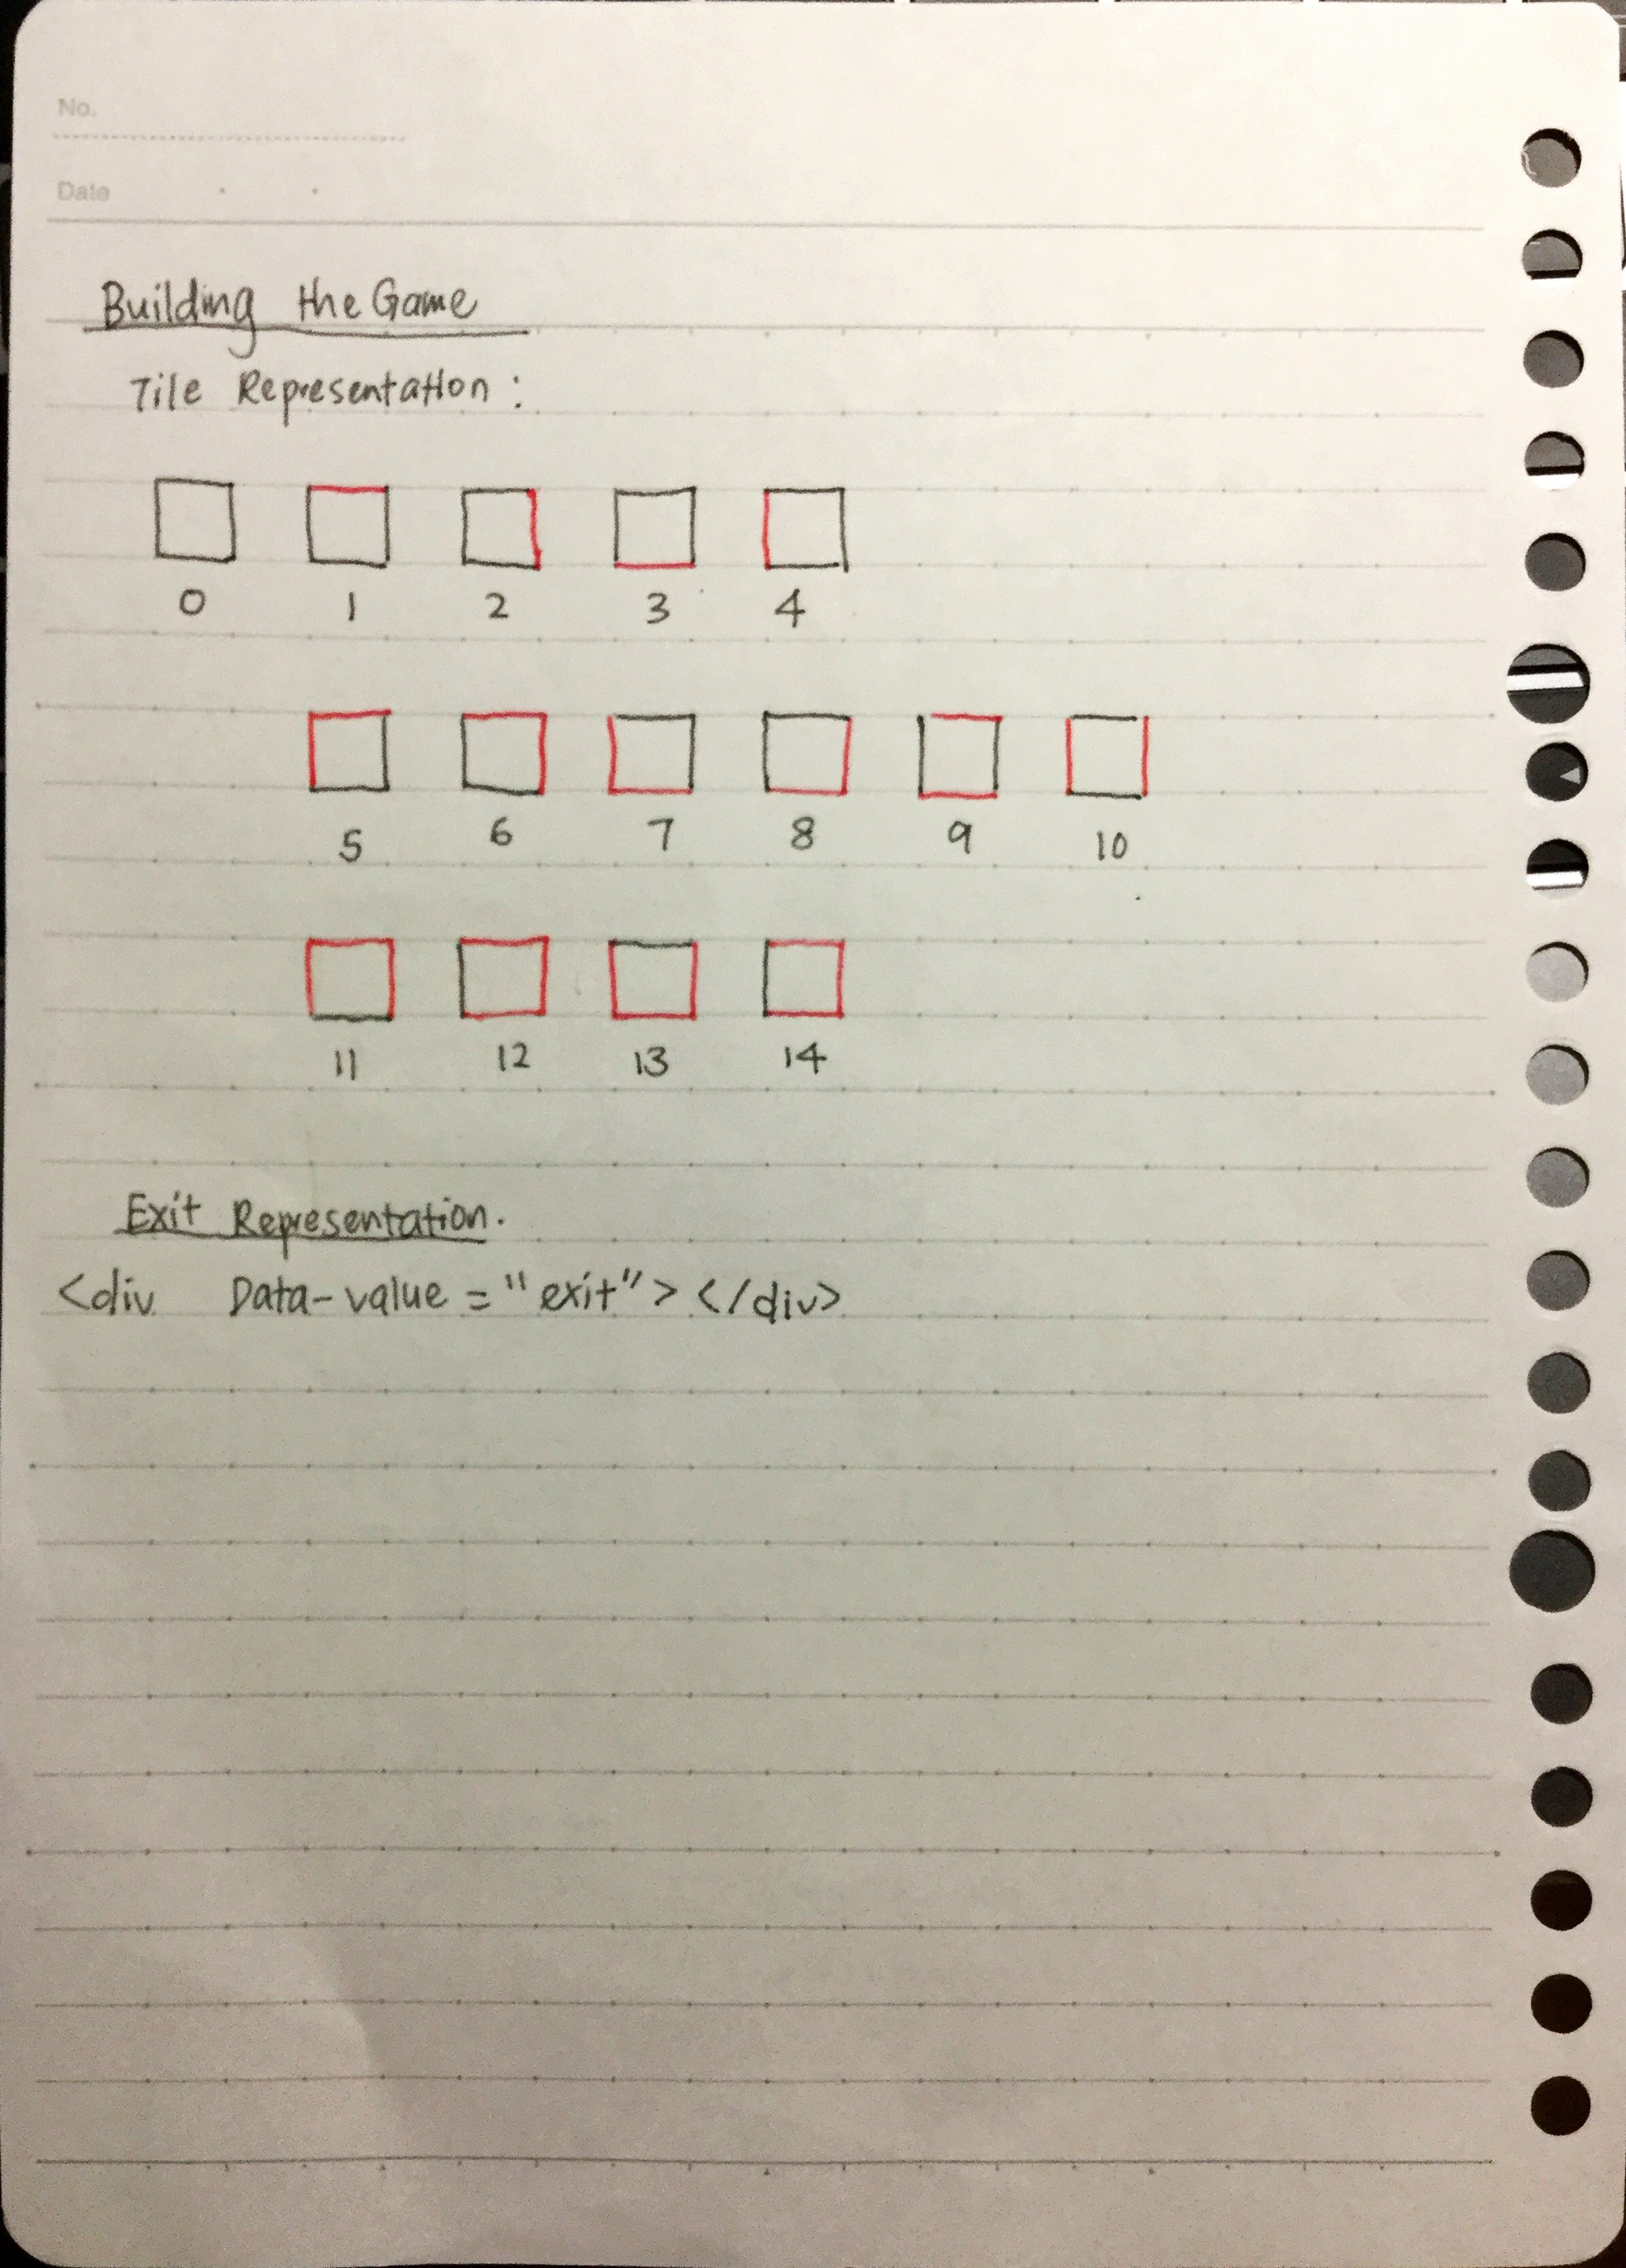 No.
Date
Building the Game
Tile Representation :
0 1 2 3 4
5 6 7 8 9 10
11 12 13 14
Exit Representation.
<div Data-value = "exit"> </div>